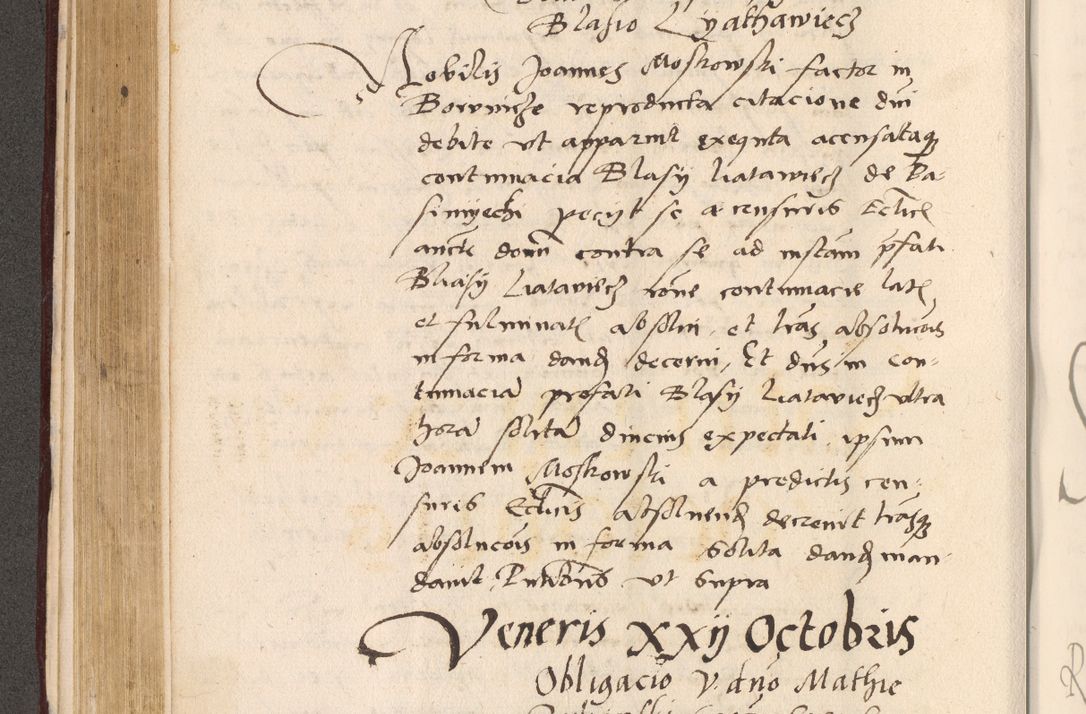 Blasio Lyathawiecz
Nobilis Joannes Moskowski factor in
Borwicze reproducta citacione dni
debite ut apparuit exequta acensataqz
contumacia Blasy liatawiecz de Ba-
simyechi petyt se a censuris Ecticis
aucte domi contra se ad instam pfati
Blasy Liatawiecz rone contumacie lats
et fulminats absolui et lras absolucois
in forma dand decerni, Et dns in con-
tumacia prefati Blasy Liataviecz ultra
hora solita diucius expectati ipsum
Joannem Moskowski a predictis cen-
suris Ecticis absoluend decrevit lrasqz
absolucois in forma solita dand man
davit, Pntibus ut supra
Veneris XXij Octobris
Obligacio V. dno Mathie